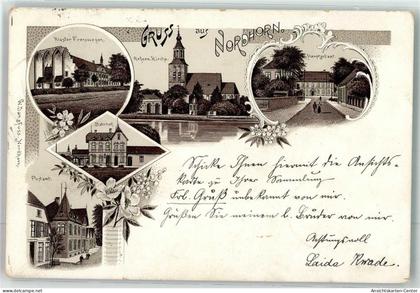 Gruss aus Nordhorn.
Kloster Frenswegen
Reform. Kirche.
Hauptstrasse
Bahnhof
Postamt
Schicke Ihnen hiermit die Ansichts-
karte zu Ihrer Sammlung
Gruß unbekannt von mir.
Grüßen Sie meinem l. Bruder von mir.
Achtungsvoll
Laida